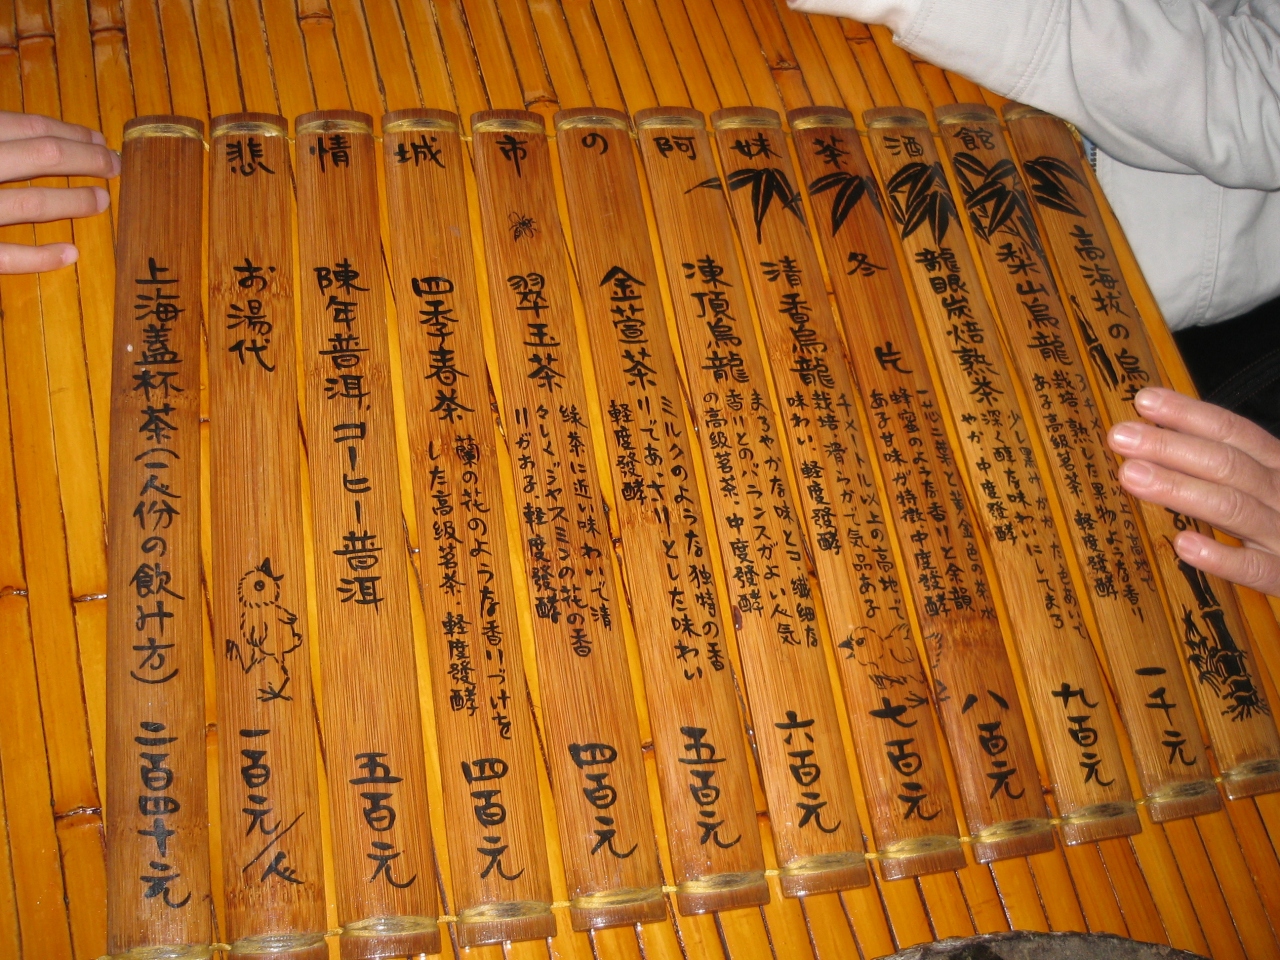 悲情城市の阿妹茶酒館
高海抜の烏
梨山烏龍
千メートル以上の高地で
栽培・熟した果物ような香り
ある高級茗茶 軽度發酵
一千元
龍眼炭焙熟茶
少し黒みがかった色あいで
深く醇な味わいにしてまろ
やか 中度發酵
九百元
冬片
一芯二葉で黄金色の茶水
蜂蜜のような香りと余韻
ある甘味が特徴 中度發酵
八百元
清香烏龍
千メートル以上の高地で
栽培 滑らかで気品ある
味わい 軽度發酵
七百元
凍頂烏龍
まろやかな味とコク 繊細な
香りとのバランスがよい人気
の高級茗茶・中度發酵
六百元
金萱茶
ミルクのような独特の香
りであっさりとした味わい
軽度發酵
五百元
翠玉茶
緑茶に近い味わいで清
々しくジャスミンの花の香
りがある・軽度發酵
四百元
四季春茶
蘭の花のような香りづけを
した高級茗茶・軽度發酵
四百元
陳年普洱,コーヒー普洱 五百元
お湯代 一百元/人
上海蓋杯茶(一人份の飲み方) 二百四十元